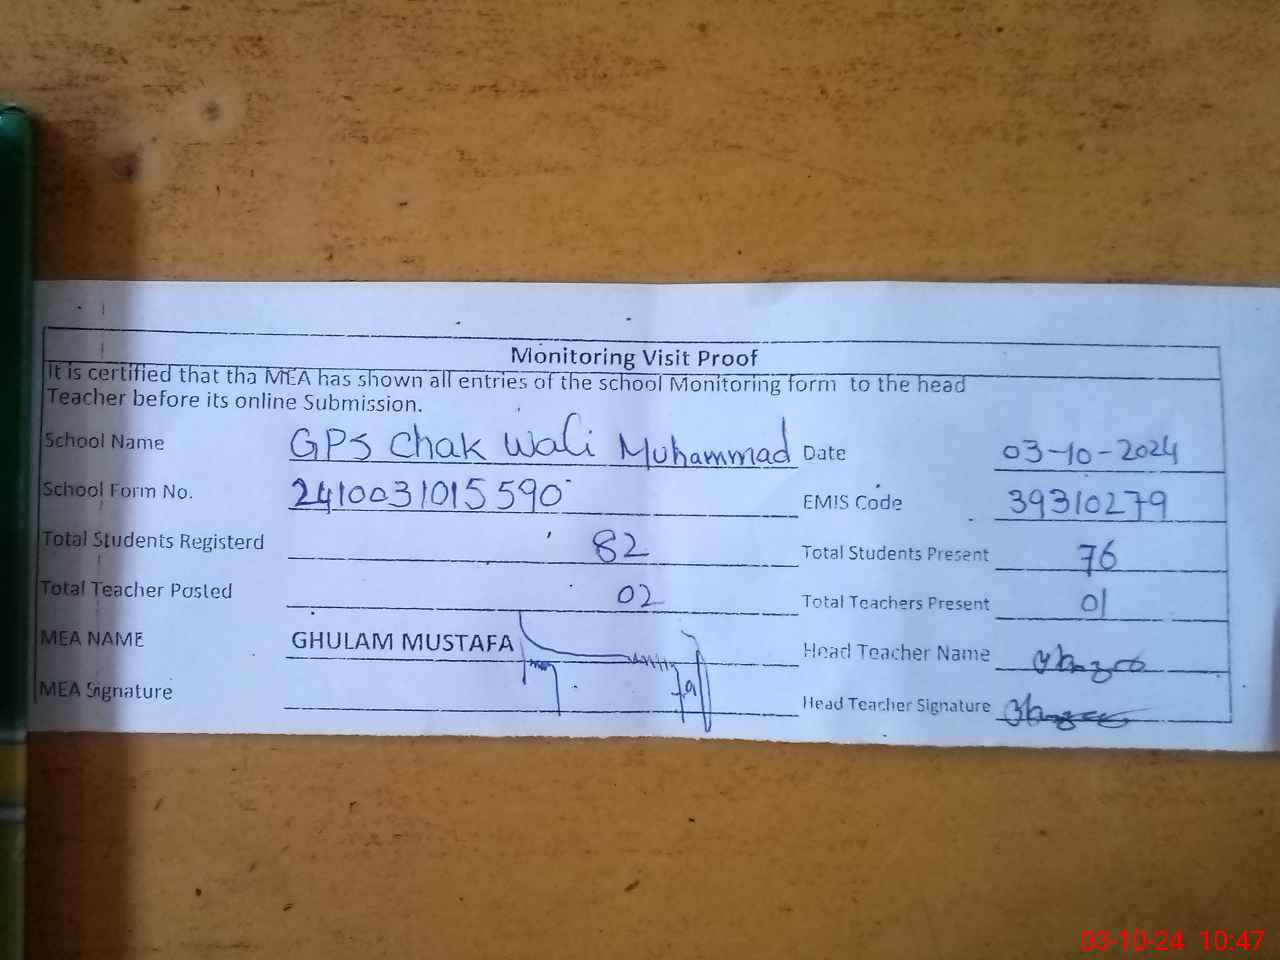 Monitoring Visit Proof
It is certified that tha MEA has shown all entries of the school Monitoring form to the head
Teacher before its online Submission.
School Name GPS Chak Wali Muhammad Date 03-10-2024
School Form No. 2410031015590 EMIS Code 39310279
Total Students Registerd 82 Total Students Present 76
Total Teacher Posted 02 Total Teachers Present 01
MEA NAME GHULAM MUSTAFA Head Teacher Name
MEA Signature Head Teacher Signature
03-10-24 10:47